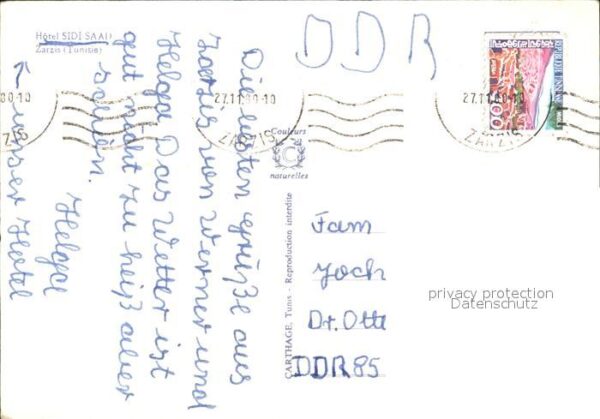 Hôtel SIDI SAAD
Zarzis (Tunisie)
DDR
Die besten Grüße aus
Zarzis von Werner und
Helga Das Wetter ist
gut nicht zu heiß aber
schön.
Helga
↑ unser Hotel
27.11.80-10
ZARZIS
27.11.80-10
ZARZIS
80-10
ZIS
REPUBLIQUE TUNISIENNE
100
Couleurs
et
naturelles
CARTHAGE, Tunis - Reproduction interdite
Fam
Joch
Dr. Otto
DDR 85
privacy protection
Datenschutz